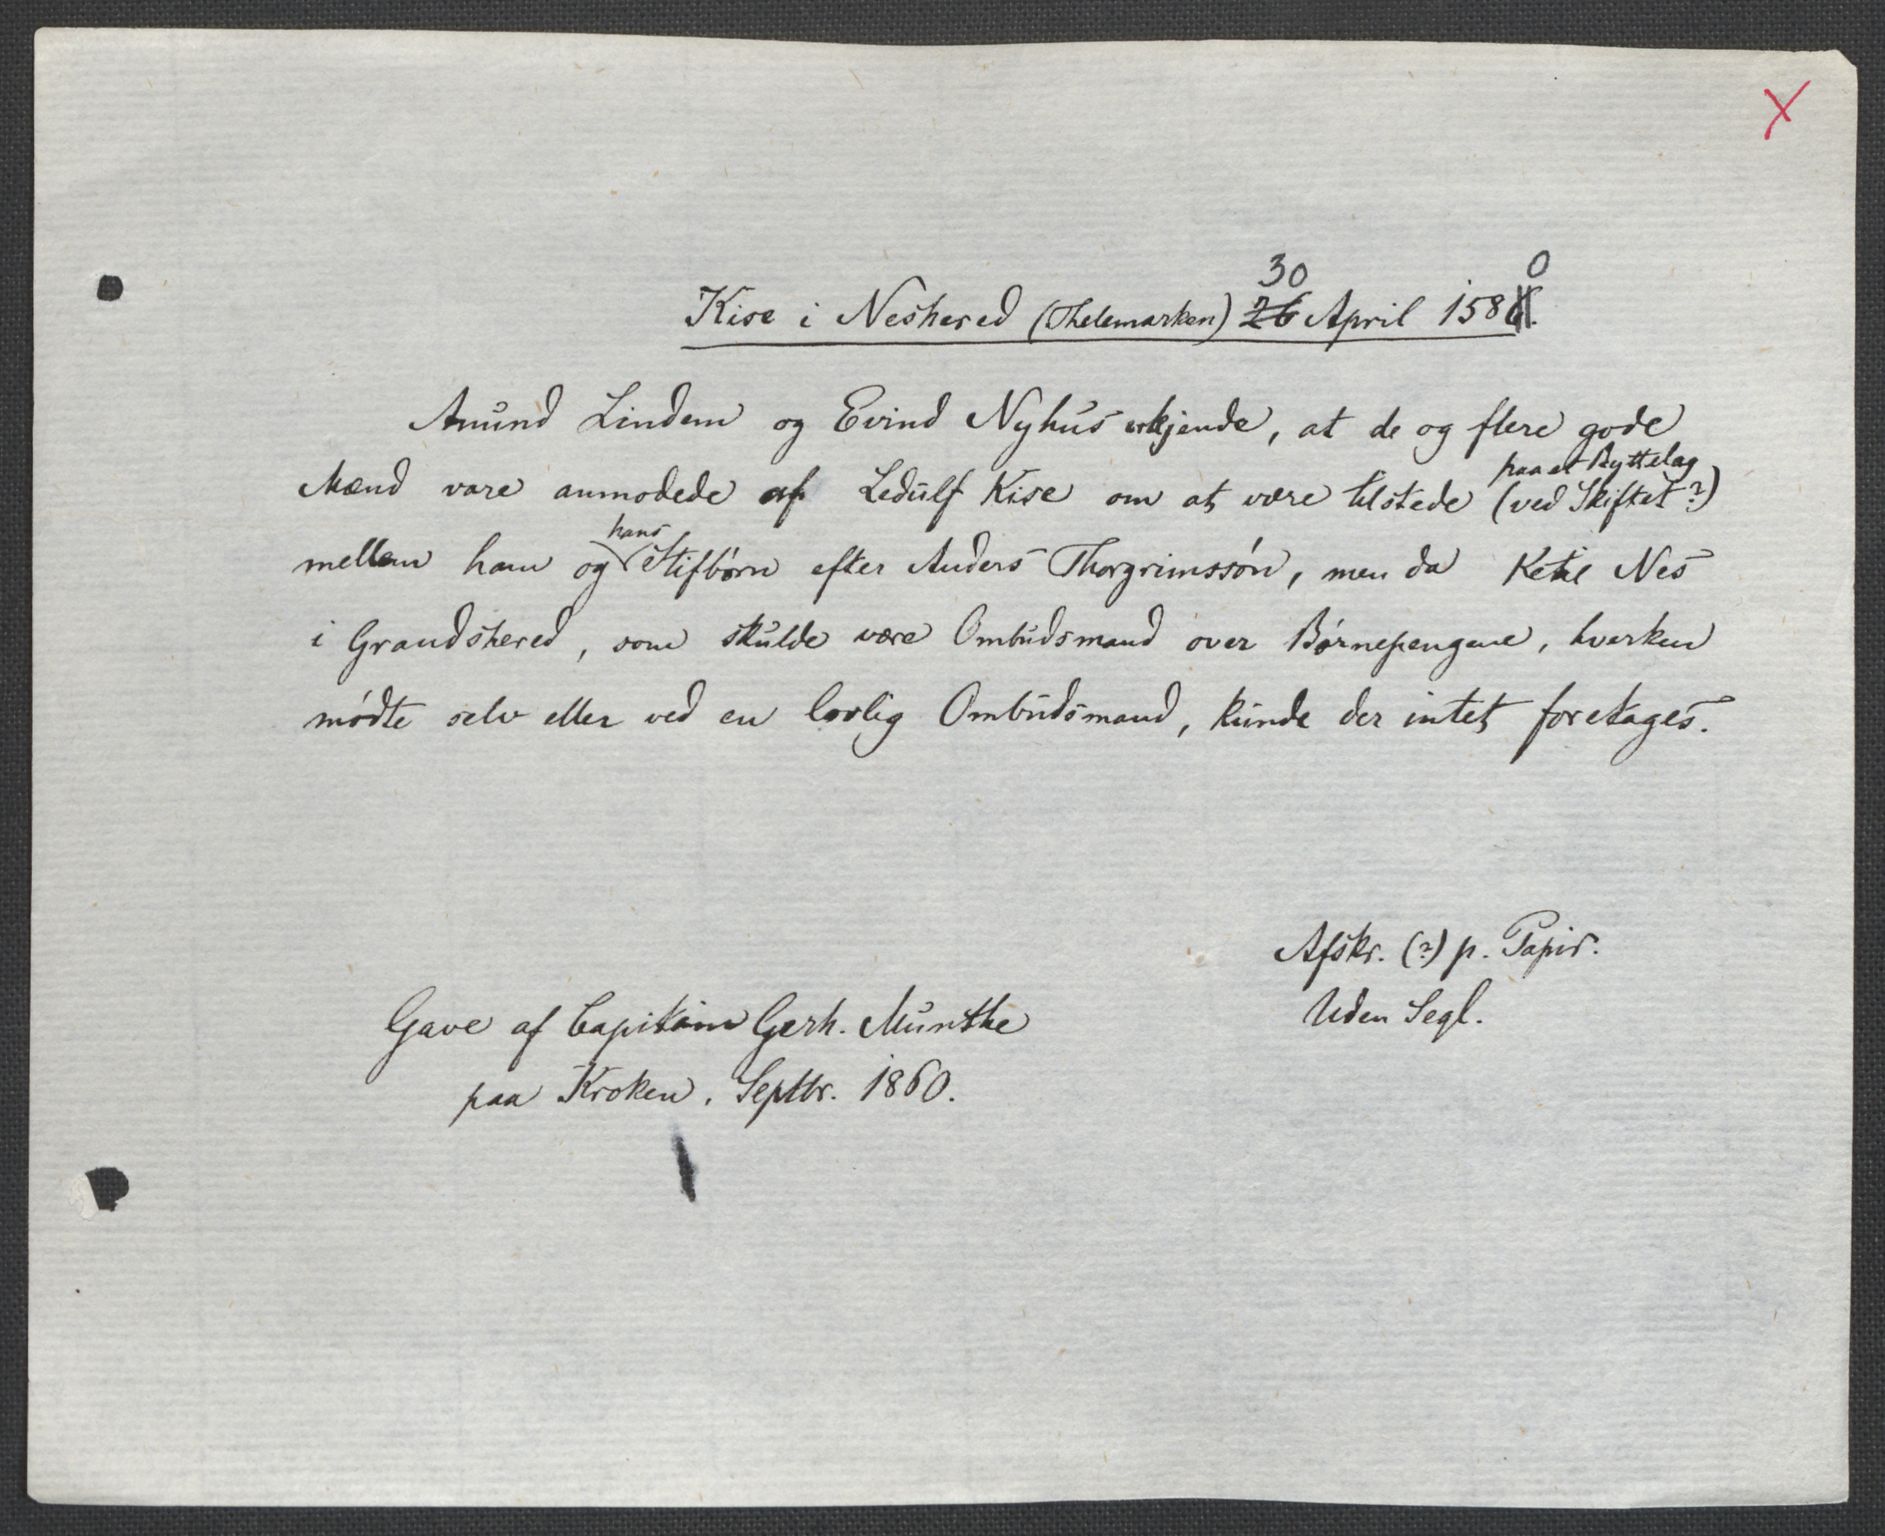 X
30 0
Kise i Neshered (Thelemarken) 26 April 158
Amund Lindem og Evind Nyhus erkjende, at de og flere gode
paa et Byttelag
Mænd vare anmodede af Ledulf Kise om at være tilstede (ved Skiftet?)
hans
mellem ham og Stifbørn efter Anders Thorgrimssøn, men da Ketil Nes
i Grandshered, som skulde være Ombudsmand over Børnepengene, hverken
mødte selv eller ved en lovlig Ombudsmand, kunde der intet foretages.
Afskr. (?) p. Papir.
Uden Segl.
Gave af Capitain Gerh. Munthe
paa Kroken. Septbr. 1860.